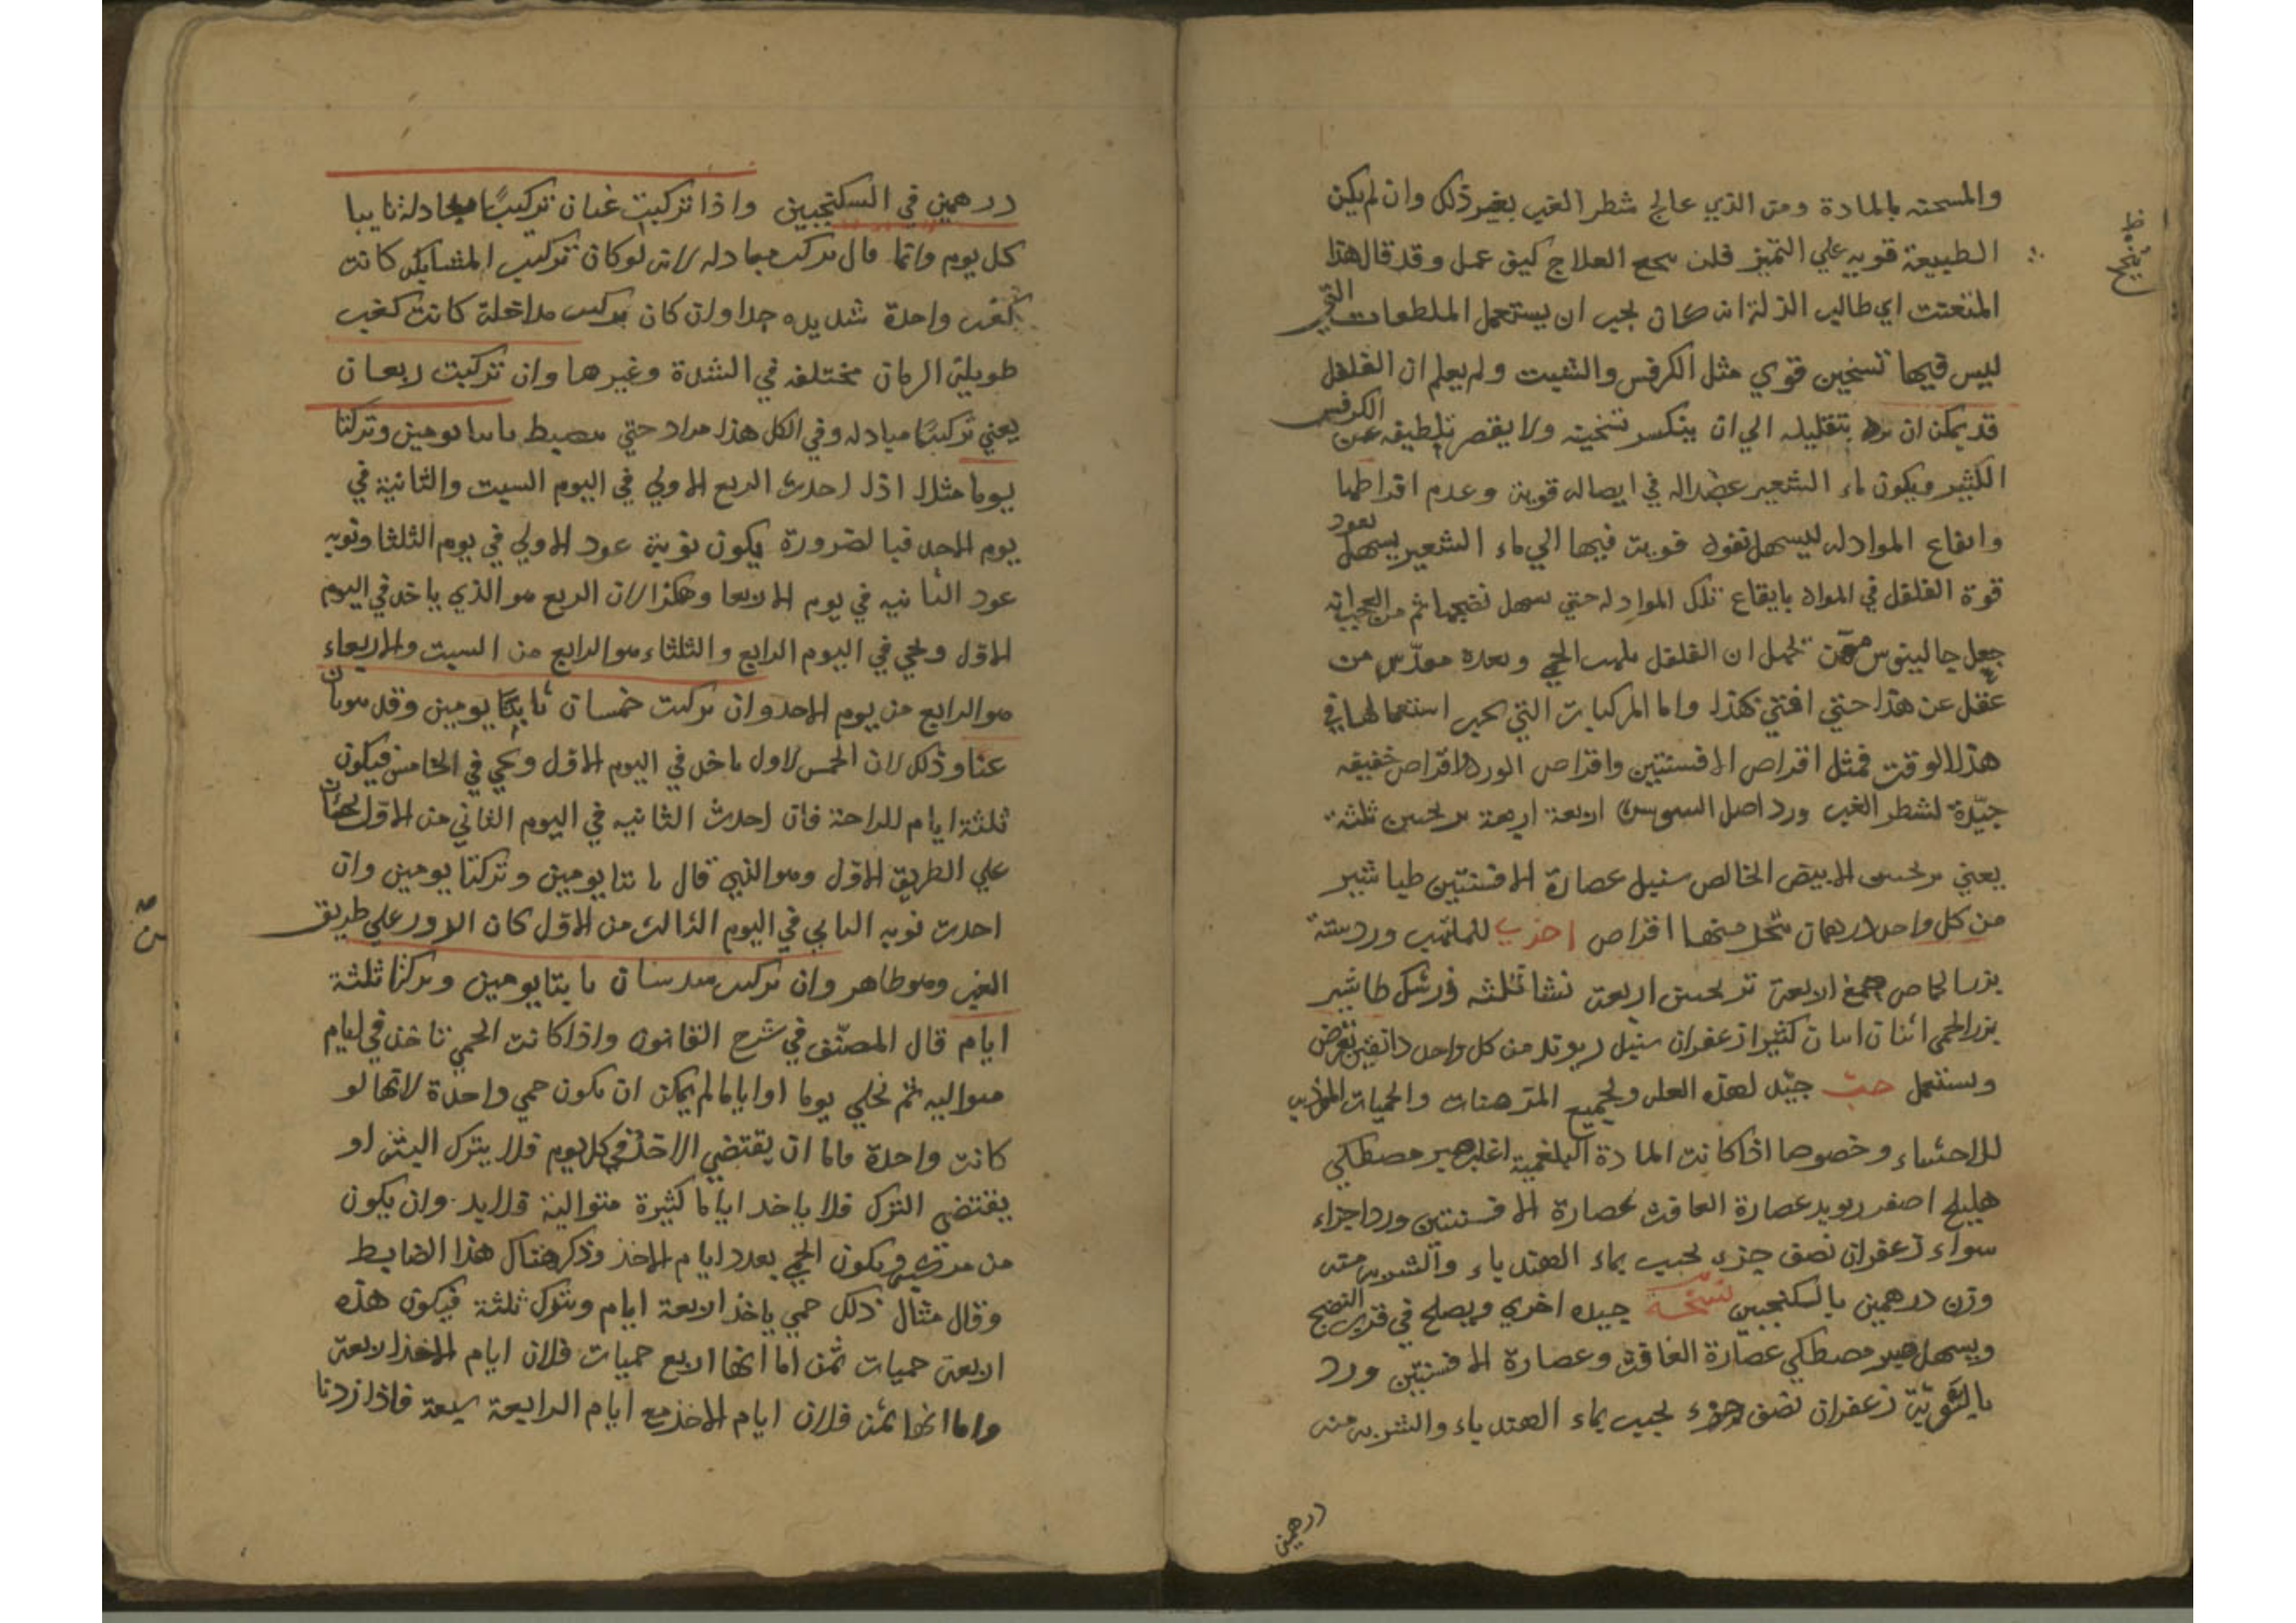 والمسخنه بالمادة ومن الذي عالج شطر الغب بغير ذلك وان لم يكن
الطبيعة قويه علي التميز فلن ينجح العلاج كيف عمل وقد قال هذا
المتعنت اي طالب الزلة انه كان يجب ان يستعمل الملطفات التي
ليس فيها تسخين قوي مثل الكرفس والشبت ولم يعلم ان الفلفل
قد يمكن ان بتقليله الي ان ينكسر تسخينه ولا يقصر تلطيفه عن الكرفس
الكثير ويكون ماء الشعير عضدا له في ايصاله قوته وعدم افراطها
وايقاع المواد له ليسهل نفوذ قوته فيها الي ماء الشعير يسهل نفوذ
قوة الفلفل في المواد بايقاع تلك المواد له حتي يسهل نضجها ثم من العجب انه
جعل جالينوس ممن يجهل ان الفلفل يلهب الحمي وبعده من
غفل عن هذا حتي افتي بهذا واما المركبات التي يجب استعمالها في
هذا الوقت فمثل اقراص الافسنتين واقراص الورد اقراص خفيفه
جيّدة لشطر الغب ورد اصل السوس اربعة اربعة ترنجبين ثلثة
يعني ترنجبين الابيض الخالص سنبل عصارة الافسنتين طباشير
من كل واحد درهمان يتخذ منها اقراص اخري للملتهب ورد ستة
بزر الحماض صمغ اربعة ترنجبين اربعة نشا ثلثه طباشير
بزر الحمقى اثنان اثنان كثيرا زعفران سنبل ريوند من كل واحد دانقين تقرض
وتستعمل حبّ جيّد لهذه العلة ولجميع المزمنات والحميات المؤذيه
للاحشاء وخصوصا اذا كانت المادة البلغمية اغلب صبر مصطكي
هليلج اصفر ريوند عصارة الغافث عصارة الافسنتين ورد اجزاء
سواء زعفران نصف جزء يحبب بماء الهندباء والشربه منه
وزن درهمين بالسكنجبين نسخة جيده اخري ويصلح في قرب النضج
ويسهل صبر مصطكي عصارة الغافث وعصارة الافسنتين ورد
بالسّويّة زعفران نصف جزء يحبب بماء الهندباء والشربه منه
درهمين
درهمين في السكنجبين واذا تركبت غبان تركيبًا مبادلة نابتا
كل يوم وانما قال تركيب مبادله لانه لوكان تركيب المشابك كانت
كغب واحدة شديده جدا وان كان تركيب مداخلة كانت كغب
طويلة الزمان مختلفه في الشدة وغيرها وان تركبت ربعان
يعني تركيبًا مبادله وفي الكل هذا مراد حتي نابتا يومين وتركتا
يوما مثلا اذا احدث الربع الاولي في اليوم السبت والثانية في
يوم الاحد فبالضرورة يكون نوبة عود الاولي في يوم الثلثا ونوبه
عود الثانيه في يوم الاربعا وهكذا لان الربع هو الذي ياخذ في اليوم
الاوّل ويجي في اليوم الرابع والثلثاء هو الرابع من السبت والاربعاء
هو الرابع من يوم الاحد وان تركبت خمسان نابتا يومين وقد
عنا وذلك لان الخمس الاول ياخذ في اليوم الاوّل ويجي في الخامس فيكون
ثلثة ايام للراحة فان احدث الثانيه في اليوم الثاني من الاوّل
علي الطريق الاوّل وهو الذي قال نابتا يومين وتركتا يومين وان
احدث نوبه الثاني في اليوم الثالث من الاوّل كان الدور علي طريق
الغب وهو ظاهر وان تركبت سدسان نابتا يومين وتركتا ثلثة
ايام قال المصنّف في شرح القانون واذا كانت الحمي تاخذ في ايام
متواليه ثم تخلي يوما او اياما لم يمكن ان يكون حمي واحدة لانها لو
كانت واحدة فاما ان يقتضي الاخذ في كل يوم فلا يترك البتة او
يقتضي الترك فلا ياخذ اياما كثيرة متوالية فلابد وان يكون
من ويكون الحمي بعدد ايام الاخذ وذكر هناك هذا الضابط
وقال مثال ذلك حمي ياخذ اربعة ايام ويترك ثلثة فيكون هذه
اربعة حميات ثمن اما انها اربع حميات فلان ايام الاخذ اربعة
واما انها ثمن فلان ايام الاخذ مع ايام الرابعة سبعة فاذا زدنا